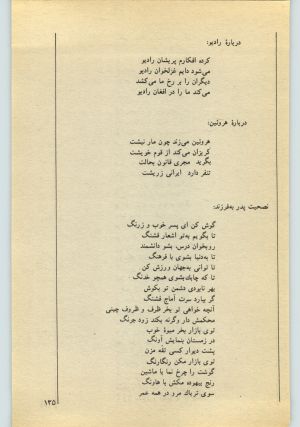 دربارهٔ رادیو:
کرده افکارم پریشان رادیو
می‌شود دایم غزلخوان رادیو
دیگران را بر رخ ما می‌کشد
می‌کند ما را در افغان رادیو
دربارهٔ هروئین:
هروئین می‌زند چون مار نیشت
گریزان می‌کند از قوم خویشت
بگرید مجری قانون بحالت
تنفر دارد ایرانی ز ریشت
نصحیت پدر به‌فرزند:
گوش کن ای پسر خوب و زرنگ
تا بگویم به‌تو اشعار قشنگ
رو بخوان درس، بشو دانشمند
تا به‌دنیا بشوی با فرهنگ
تا توانی به‌جهان ورزش کن
تا که چابک بشوی همچو خدنگ
بهر نابودی دشمن تو بکوش
گر بیارد سرت آماج فشنگ
آنچه خواهی تو بخر ظرف و ظروف چینی
محکمش دار وگرنه بکند زود جرنگ
توی بازار بخر میوهٔ خوب
در زمستان بنمایش آونگ
پشت دیوار کسی تقه مزن
توی بازار مکن رنگارنگ
گوشت را چرخ نما با ماشین
رنج بیهوده مکش با هاونگ
سوی تریاک مرو در همه عمر
۱۳۵